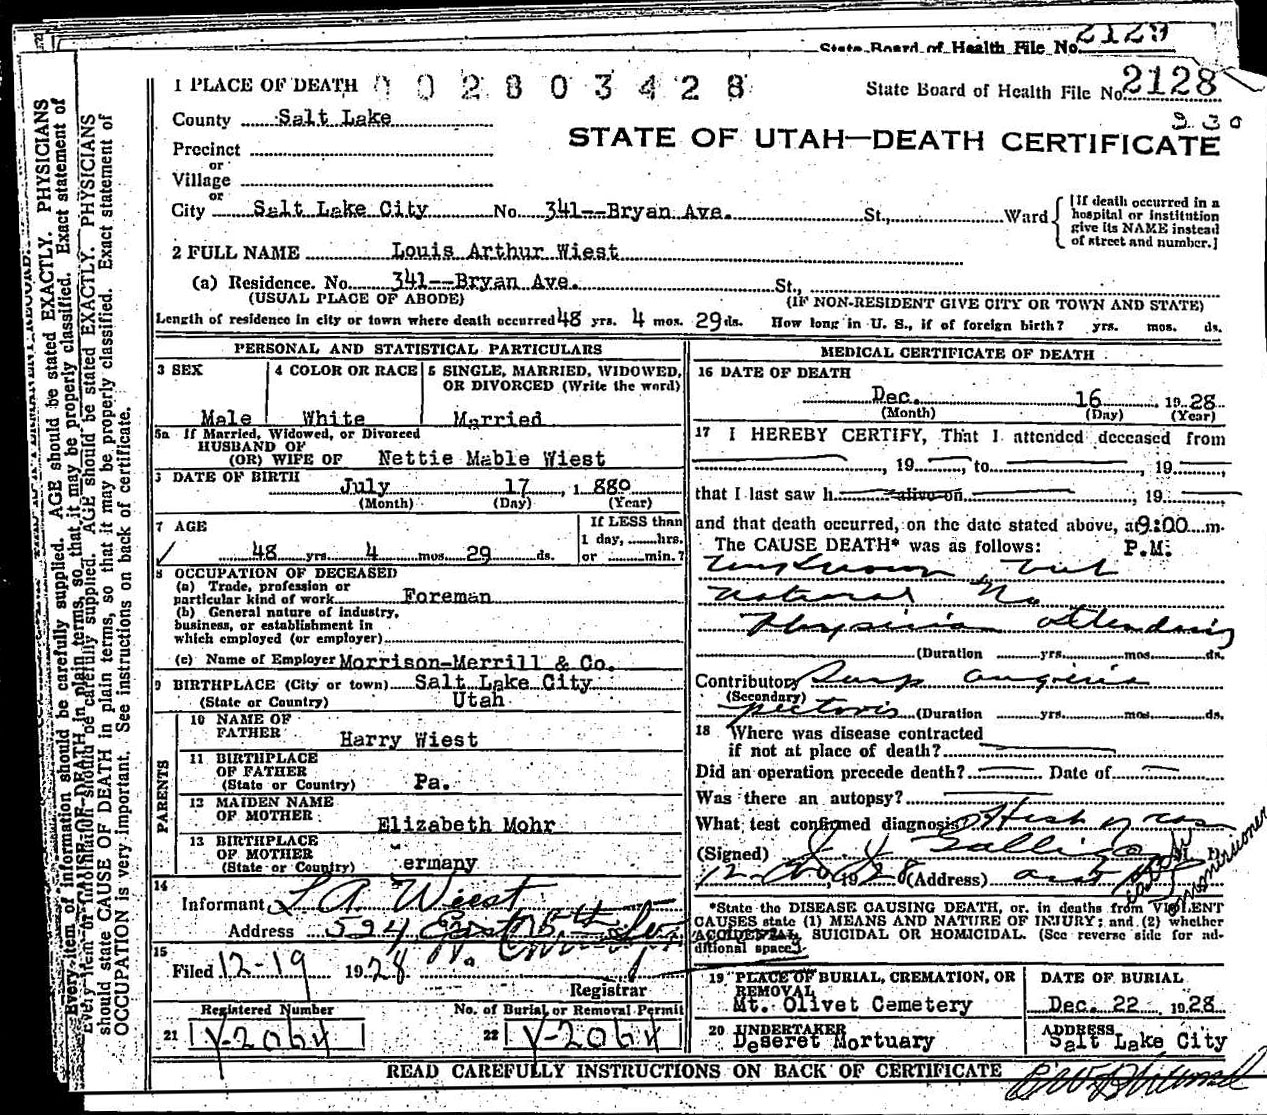 State Board of Health File No. 2129
1 PLACE OF DEATH 002803428 State Board of Health File No. 2128
County Salt Lake
230
STATE OF UTAH—DEATH CERTIFICATE
Precinct
or
Village
or
City Salt Lake City No. 341--Bryan Ave. St., Ward
[If death occurred in a hospital or institution give its NAME instead of street and number.]
2 FULL NAME Louis Arthur Wiest
(a) Residence. No. 341--Bryan Ave. St.,
(USUAL PLACE OF ABODE) (IF NON-RESIDENT GIVE CITY OR TOWN AND STATE)
Length of residence in city or town where death occurred 48 yrs. 4 mos. 29 ds. How long in U. S., if of foreign birth? yrs. mos. ds.
PERSONAL AND STATISTICAL PARTICULARS
3 SEX 4 COLOR OR RACE 5 SINGLE, MARRIED, WIDOWED, OR DIVORCED (Write the word)
Male White Married
5a If Married, Widowed, or Divorced
HUSBAND OF
(OR) WIFE OF Nettie Mable Wiest
DATE OF BIRTH
July 17, 1880
(Month) (Day) (Year)
7 AGE If LESS than
1 day, hrs.
48 yrs. 4 mos. 29 ds. or min.?
8 OCCUPATION OF DECEASED
(a) Trade, profession or
particular kind of work Foreman
(b) General nature of industry,
business, or establishment in
which employed (or employer)
(c) Name of Employer Morrison-Merrill & Co.
9 BIRTHPLACE (City or town) Salt Lake City
(State or Country) Utah
PARENTS
10 NAME OF
FATHER Harry Wiest
11 BIRTHPLACE
OF FATHER
(State or Country) Pa.
12 MAIDEN NAME
OF MOTHER Elizabeth Mohr
13 BIRTHPLACE
OF MOTHER
(State or Country) ermany
14
Informant L A Wiest
Address 524 East
15
Filed 12-19 1928
Registrar
Registered Number No. of Burial or Removal Permit
21 Y-2064 22 Y-2064
MEDICAL CERTIFICATE OF DEATH
16 DATE OF DEATH
Dec. 16 1928
(Month) (Day) (Year)
17 I HEREBY CERTIFY, That I attended deceased from
, 19 , to , 19
that I last saw h alive on , 19
and that death occurred, on the date stated above, at 9:00 m.
The CAUSE DEATH* was as follows: P.M.
Unknown but
Natural No
Physician attending
(Duration yrs. mos. ds.
Contributory angina
(Secondary)
pectoris (Duration yrs. mos. ds.
18 Where was disease contracted
if not at place of death?
Did an operation precede death? Date of
Was there an autopsy?
What test confirmed diagnosis?
(Signed)
1928 (Address)
*State the DISEASE CAUSING DEATH, or, in deaths from VIOLENT
CAUSES state (1) MEANS AND NATURE OF INJURY; and (2) whether
ACCIDENTAL, SUICIDAL OR HOMICIDAL. (See reverse side for ad-
ditional space).
19 PLACE OF BURIAL, CREMATION, OR
REMOVAL
Mt. Olivet Cemetery
DATE OF BURIAL
Dec. 22 1928
20 UNDERTAKER
Deseret Mortuary
ADDRESS
Salt Lake City
READ CAREFULLY INSTRUCTIONS ON BACK OF CERTIFICATE
Every item of information should be carefully supplied. AGE should be stated EXACTLY. PHYSICIANS
should state CAUSE OF DEATH in plain terms, so that it may be properly classified. Exact statement of
OCCUPATION is very important. See instructions on back of certificate.